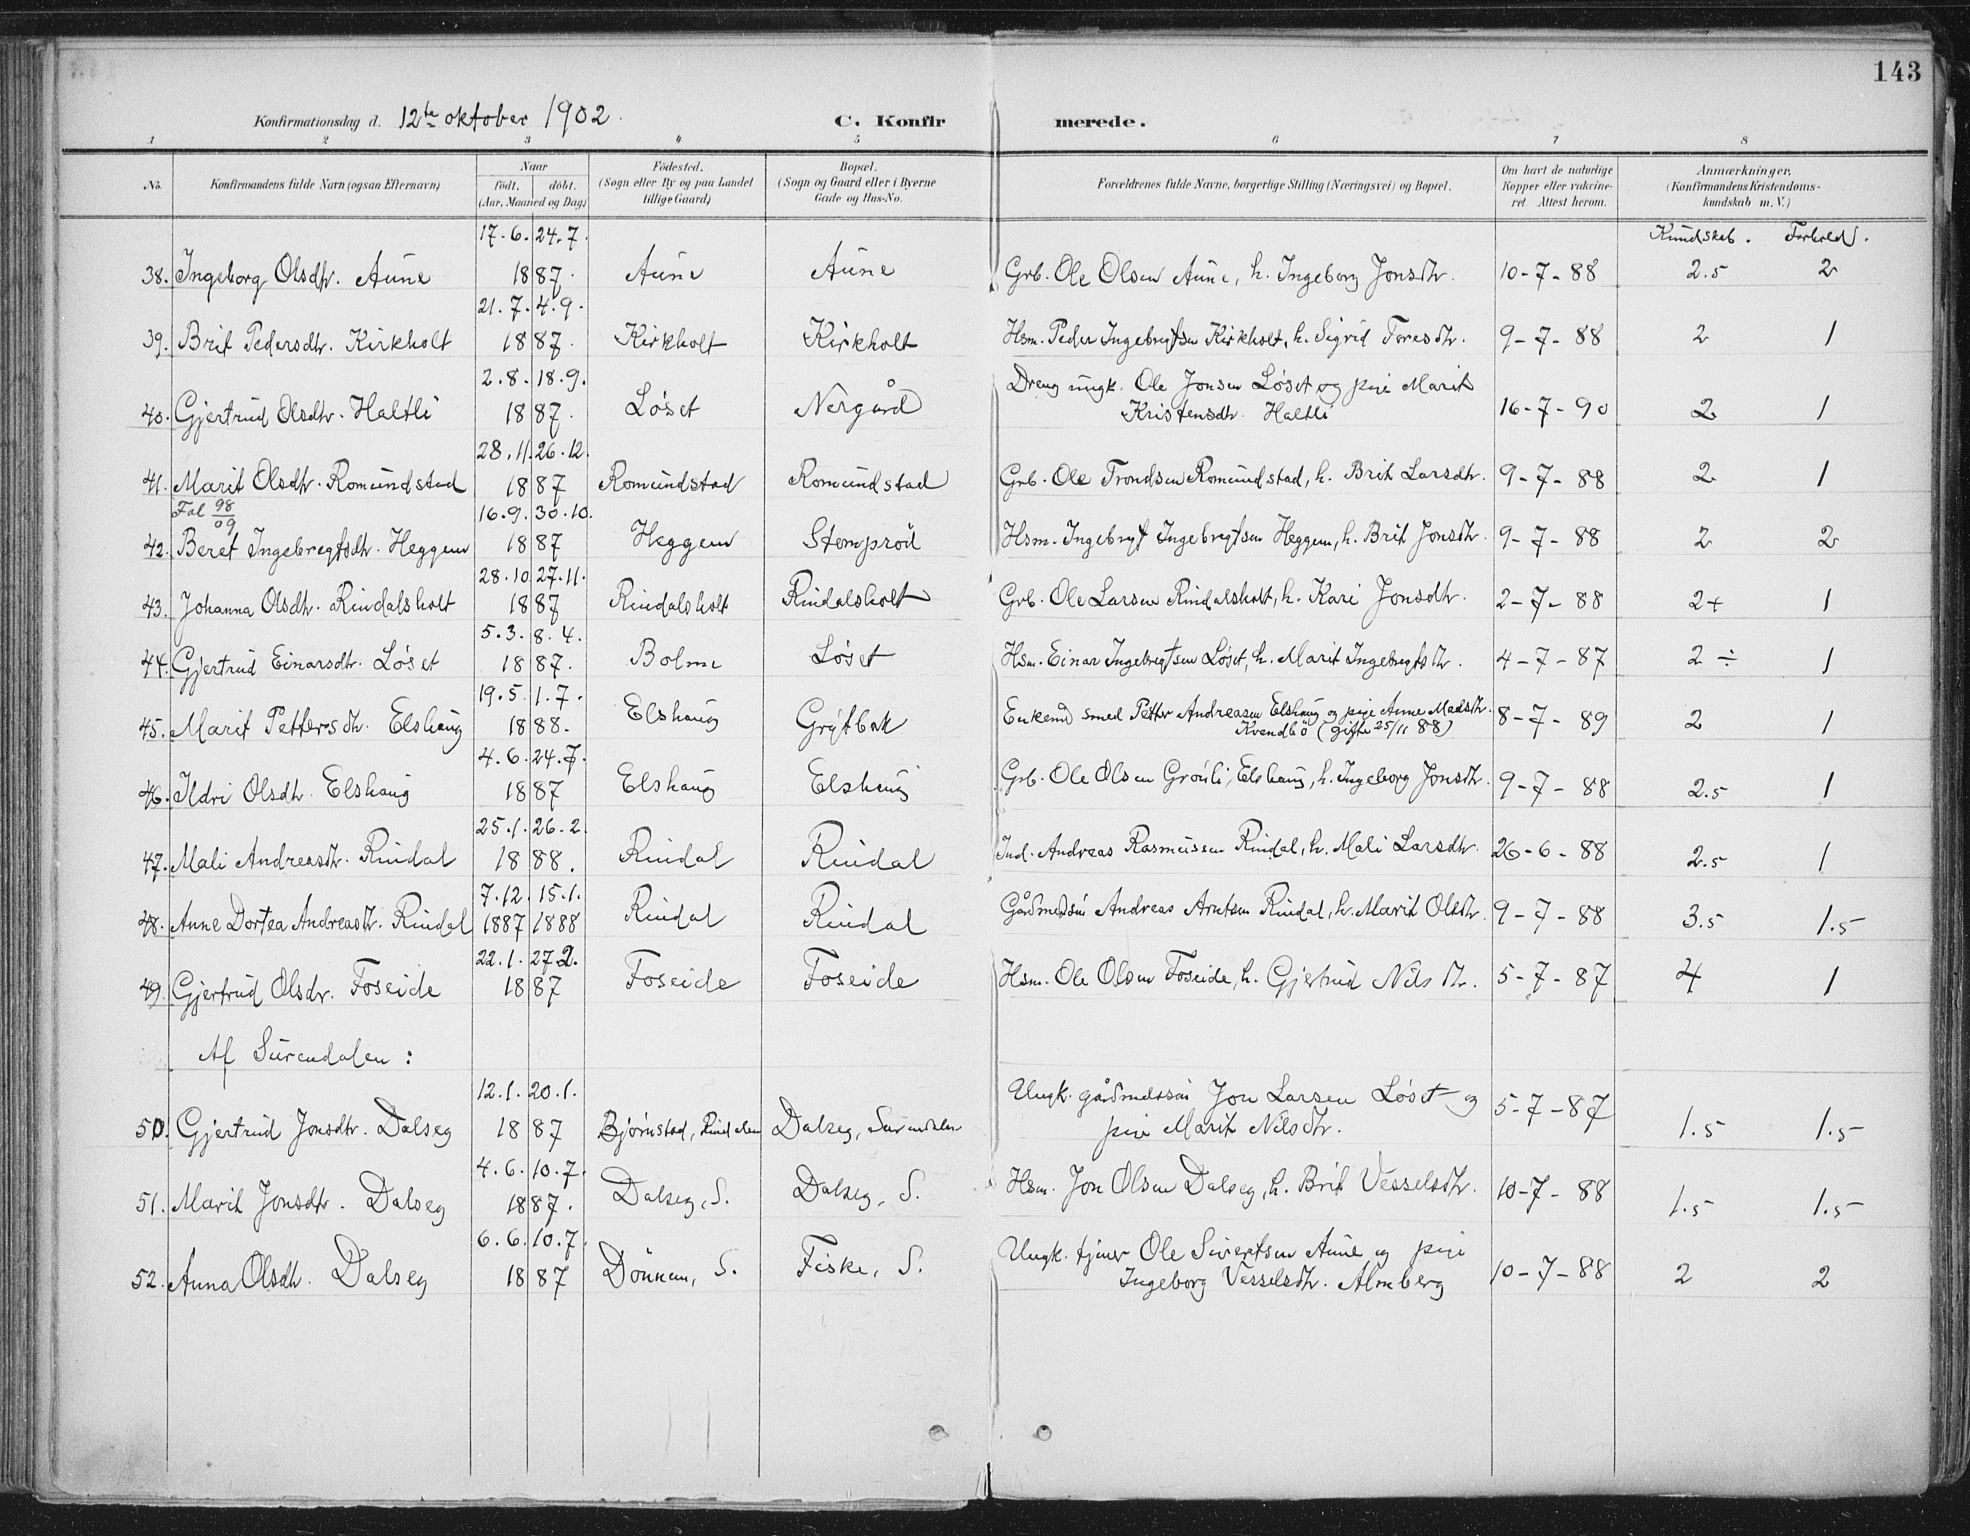 143
Konfirmationsdag d. 12te oktober 1902. C. Konfirmerede.
1 2 3 4 5 6 7 8
No. Konfirmandens fulde Navn (ogsaa Efternavn) Naar født. døbt. (Aar, Maaned og Dag) Fødested. (Sogn eller By og paa Landet tillige Gaard) Bopæl. (Sogn og Gaard eller i Byerne Gade og Hus-No. Forældrenes fulde Navne, borgerlige Stilling (Næringsvei) og Bopæl. Om havt de naturlige Kopper eller vaccineret. Attest herom. Anmærkninger, (Konfirmandens Kristendomskundskab m. V.)
Kundskab. Forhold.
17.6. 24.7.
38. Ingeborg Olsdtr. Aune 1887. Aune Aune Grb. Ole Olsen Aune, h. Ingeborg Jonsdtr. 10-7-88 2.5 2
21.7. 4.9.
39. Brit Pedersdtr. Kirkholt 1887. Kirkholt Kirkholt Hsm. Peder Ingebregtsen Kirkholt, h. Sigrid Toresdtr. 9-7-88 2 1
2.8. 18.9. Dreng ungk. Ole Jonsen Løset og pige Marit
40. Gjertrud Olsdtr. Haltli 1887. Løset Nergård Kristensdtr. Haltli 16-7-90 2 1
28.11. 26.12.
41. Marit Olsdtr. Romundstad 1887 Romundstad Romundstad Grb. Ole Trondsen Romundstad, h. Brit Larsdtr. 9-7-88 2 1
Fal 98/09 16.9. 30.10.
42. Beret Ingebregtsdtr. Heggem 1887 Heggem Stomprød Hsm. Ingebregt Ingebregtsen Heggem, h. Brit Jonsdtr. 9-7-88 2 2
28.10 27.11.
43. Johanna Olsdtr. Rindalsholt 1887 Rindalsholt Rindalsholt Grb. Ole Larsen Rindalsholt, h. Kari Jonsdtr. 2-7-88 2+ 1
5.3. 8.4.
44. Gjertrud Einarsdtr. Løset 1887. Bolme Løset Hsm. Einar Ingebregtsen Løset, h. Marit Ingebregtsdtr. 4-7-87 2 ÷ 1
19.5. 1.7. Enkemd smed Petter Andreasen Elshaug og pige Anne Madsdtr.
45. Marit Pettersdtr. Elshaug 1888. Elshaug Grytbak Kvendbø (gifte 25/11 88) 8-7-89 2 1
4.6. 24.7.
46. Ildri Olsdtr. Elshaug 1887 Elshaug Elshaug Grb. Ole Olsen Grønli, Elshaug, h. Ingeborg Jonsdtr. 9-7-88 2.5 1
25.1. 26.2.
47. Mali Andreasdtr. Rindal 1888. Rindal Rindal Ind. Andreas Rasmussen Rindal, h. Mali Larsdtr. 26-6-88 2.5 1
7.12. 15.1.
48. Anne Dortea Andreasdtr. Rindal 1887 1888 Rindal Rindal Gårdmdssøn Andreas Arntsen Rindal, h. Marit Olsdtr. 9-7-88 3.5 1.5
22.1. 27.2.
49. Gjertrud Olsdr. Foseide 1887 Foseide Foseide Hsm. Ole Olsen Foseide, h. Gjertrud Nilsdtr. 5-7-87 4 1
Af Surendalen:
12.1. 20.1. Ungk. gårdmdssøn Jon Larsen Løset og
50. Gjertrud Jonsdtr. Dalseg 1887 Bjørnstad, Rindalen Dalseg, Surendalen pige Marit Nilsdtr. 5-7-87 1.5 1.5
4.6. 10.7.
51. Marit Jonsdtr. Dalseg 1887. Dalseg, S. Dalseg, S. Hsm. Jon Olsen Dalseg, h. Brit Vesselsdtr. 10-7-88 1.5 1.5
6.6. 10.7. Ungk. tjener Ole Sivertsen Aune og pige
52. Anna Olsdtr. Dalseg 1887 Dønnem, S. Fiske, S. Ingeborg Vesselsdtr. Almberg 10-7-88 2 2